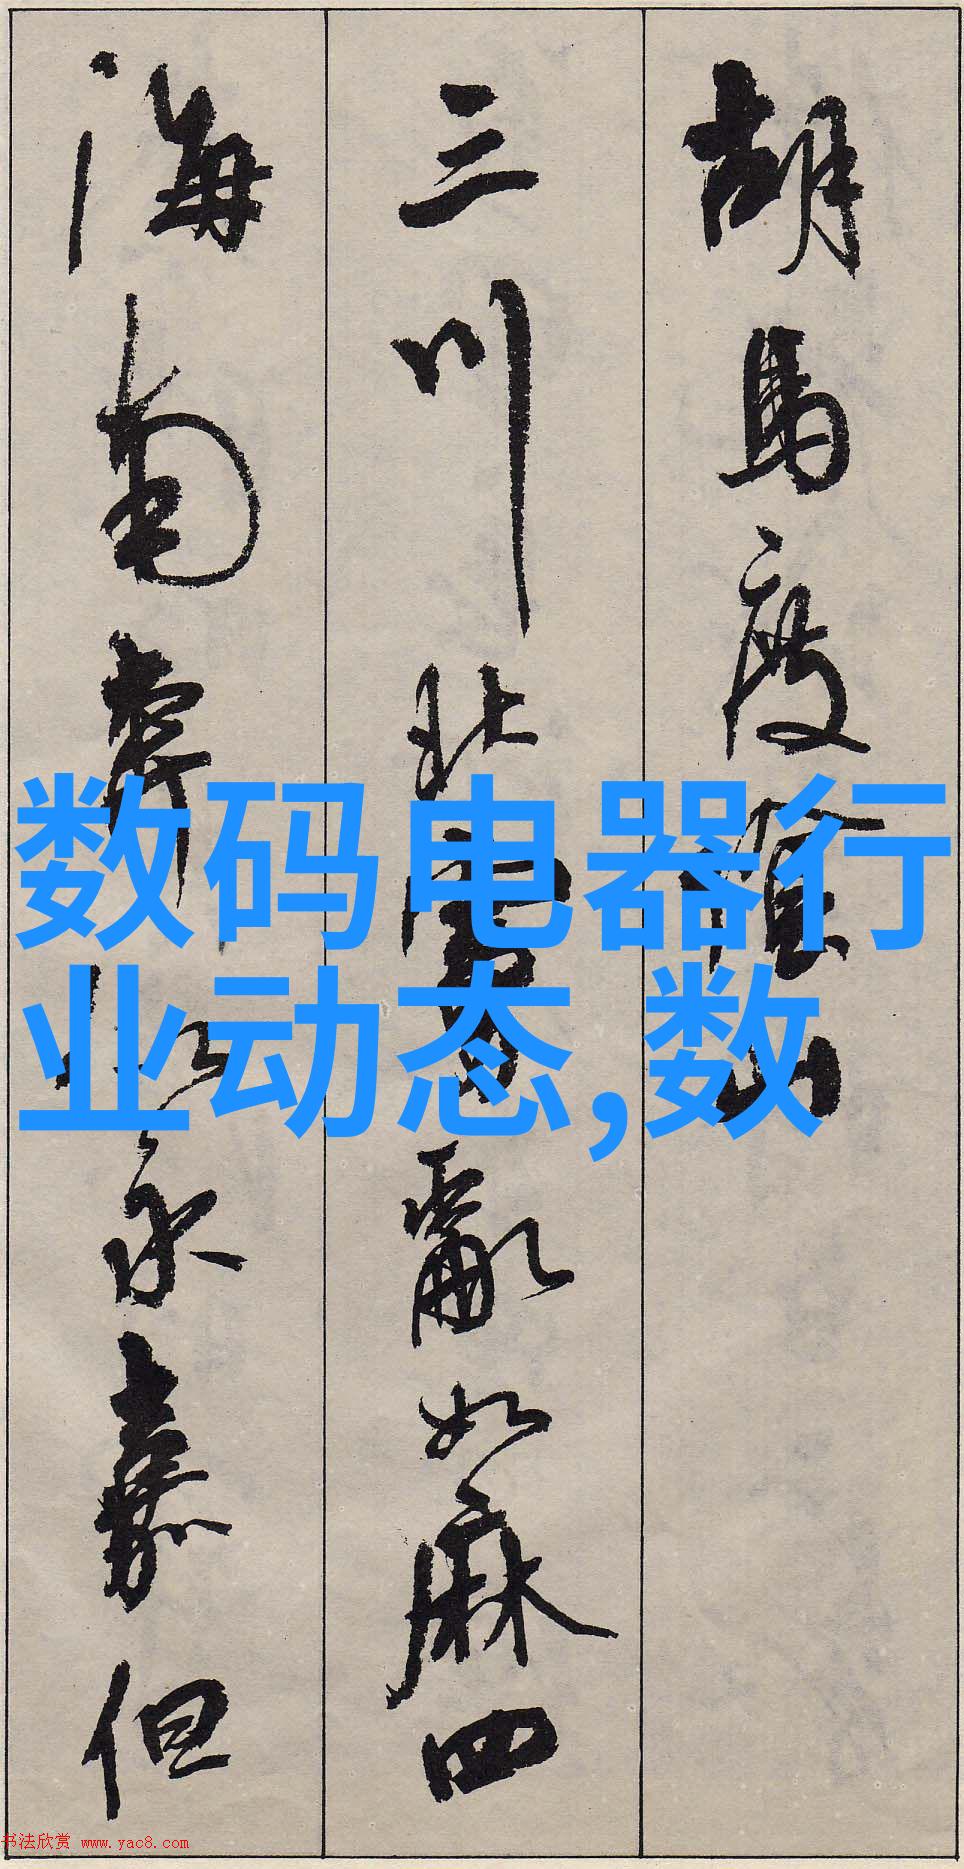 胡马度
三川北虏乱如麻四
海南奔似永嘉但
数码电器行
业动态,数
书法欣赏 www.yac8.com